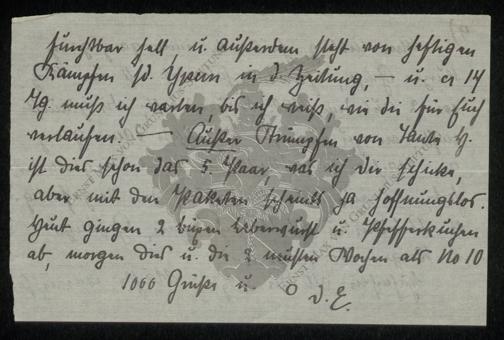 furchtbar hell u. außerdem steht von heftigen
Kämpfen sd. Ypern in d. Zeitung, – u. ca 14
Tg. muß ich warten, bis ich weiß, wie die für Euch
verlaufen. — Außer Strümpfen von Tante H.
ist dies schon das 5. Paar was ich Dir schicke,
aber mit den Paketen scheints ja hoffnungslos.
Heut gingen 2 Leberwurst u. Pfefferkuchen
ab, morgen dies u. die 2 nächsten Wochen als No 10
1000 Grüße u. O D. E.